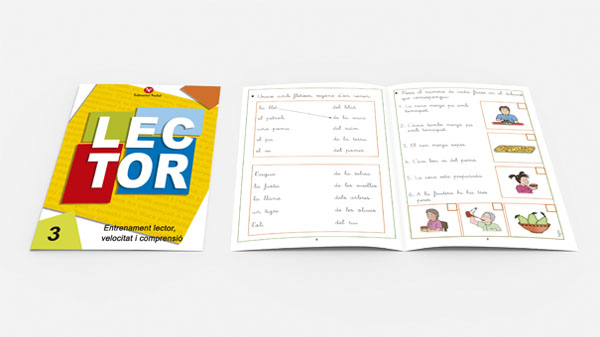 Editorial Salvatella
LEC
TOR
3
Entrenament lector,
velocitat i comprensió
Uneix amb fletxes segons d'on venen.
la llet del blat
el petroli de la vaca
una poma del raïm
el pa de la terra
el vi del pomer
l'aigua de la selva
la fusta de les ovelles
la llana dels arbres
un tigre de les olives
l'oli del riu
Posa el número de cada frase en el dibuix
que correspongui.
1. La nena menja pa amb
tomàquet.
2. L'àvia també menja pa amb
tomàquet.
3. El nen menja sopa.
5. La coca està preparada.
6. A la fruitera hi ha tres
peres.